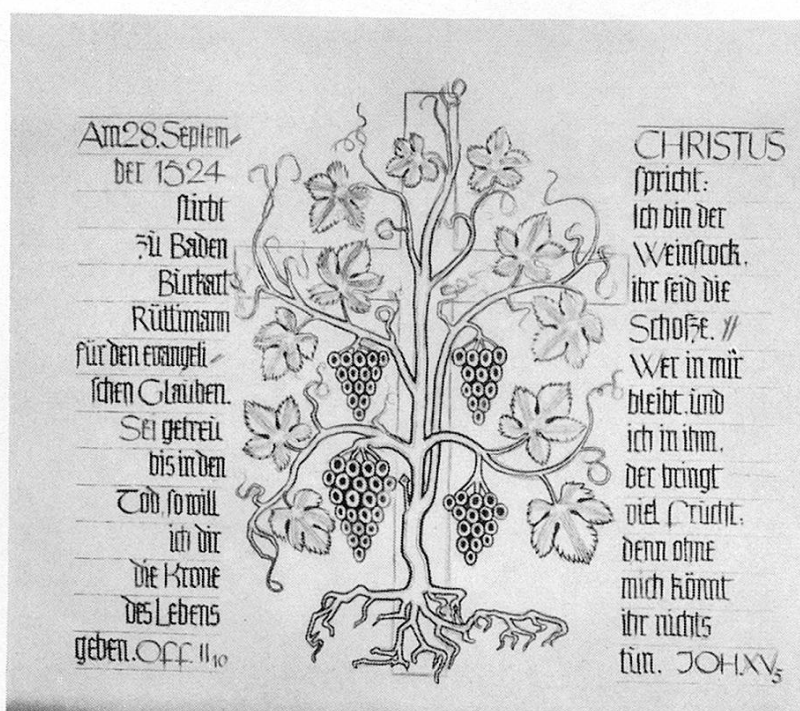 Am 28. Septem-
ber 1524
stirbt
zu Baden
Burkart
Rüttimann
für den evangeli-
schen Glauben.
Sei getreu
bis in den
Tod, so will
ich dir
die Krone
des Lebens
geben. Off. II 10
CHRISTUS
spricht:
Ich bin der
Weinstock,
ihr seid die
Schoße. //
Wer in mir
bleibt, und
ich in ihm,
der bringt
viel Frucht;
denn ohne
mich könnt
ihr nichts
tun. JOH. XV 5